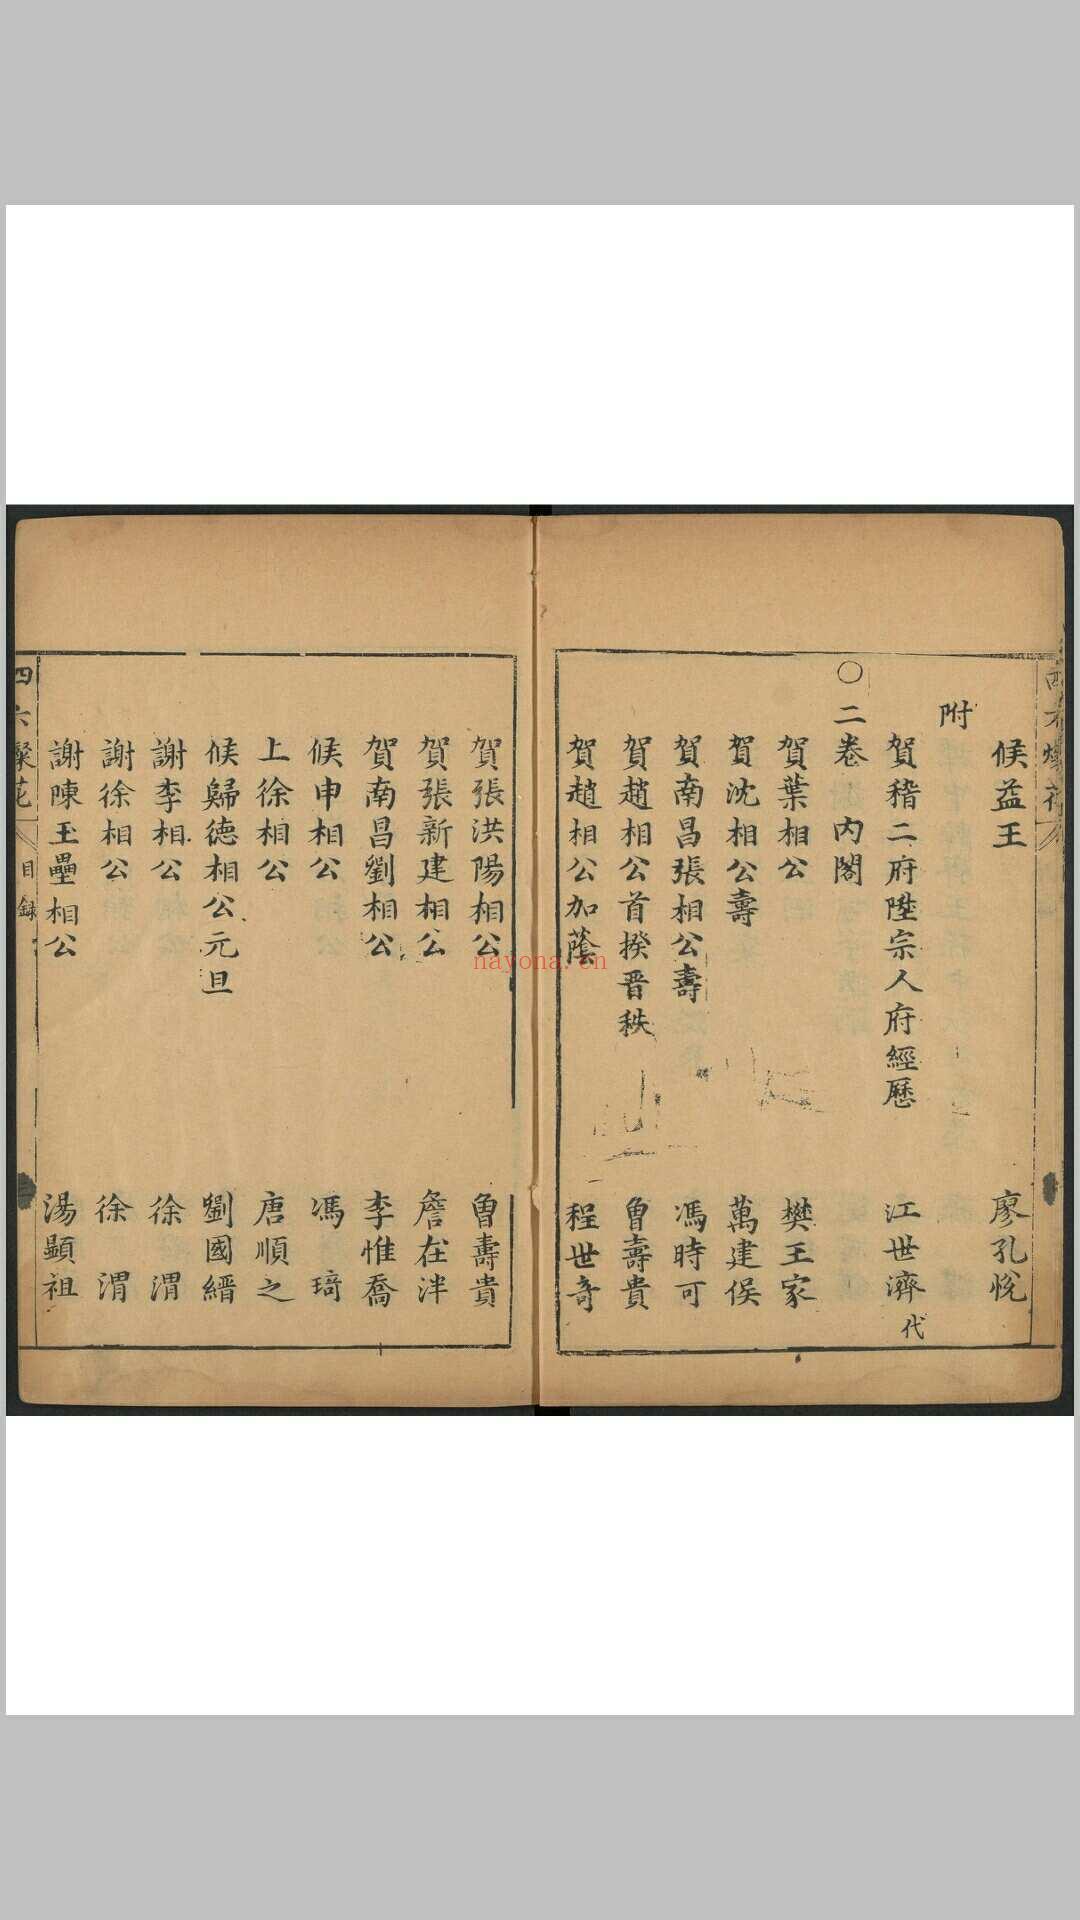 候益王 廖孔悅
附
賀稽二府陞宗人府經歷 江世濟代
○二卷內閣
賀葉相公 樊王家
賀沈相公壽 萬建侯
賀南昌張相公壽 馮時可
賀趙相公首揆晋秩 魯壽貴
賀趙相公加蔭 程世奇
賀張洪陽相公 魯壽貴
賀張新建相公 詹在泮
賀南昌劉相公 李惟喬
候申相公 馮琦
上徐相公 唐順之
候歸德相公元旦 劉國縉
謝李相公 徐渭
謝徐相公 徐渭
謝陳玉壘相公 湯顯祖
四六燦花 目錄
nayona.cn